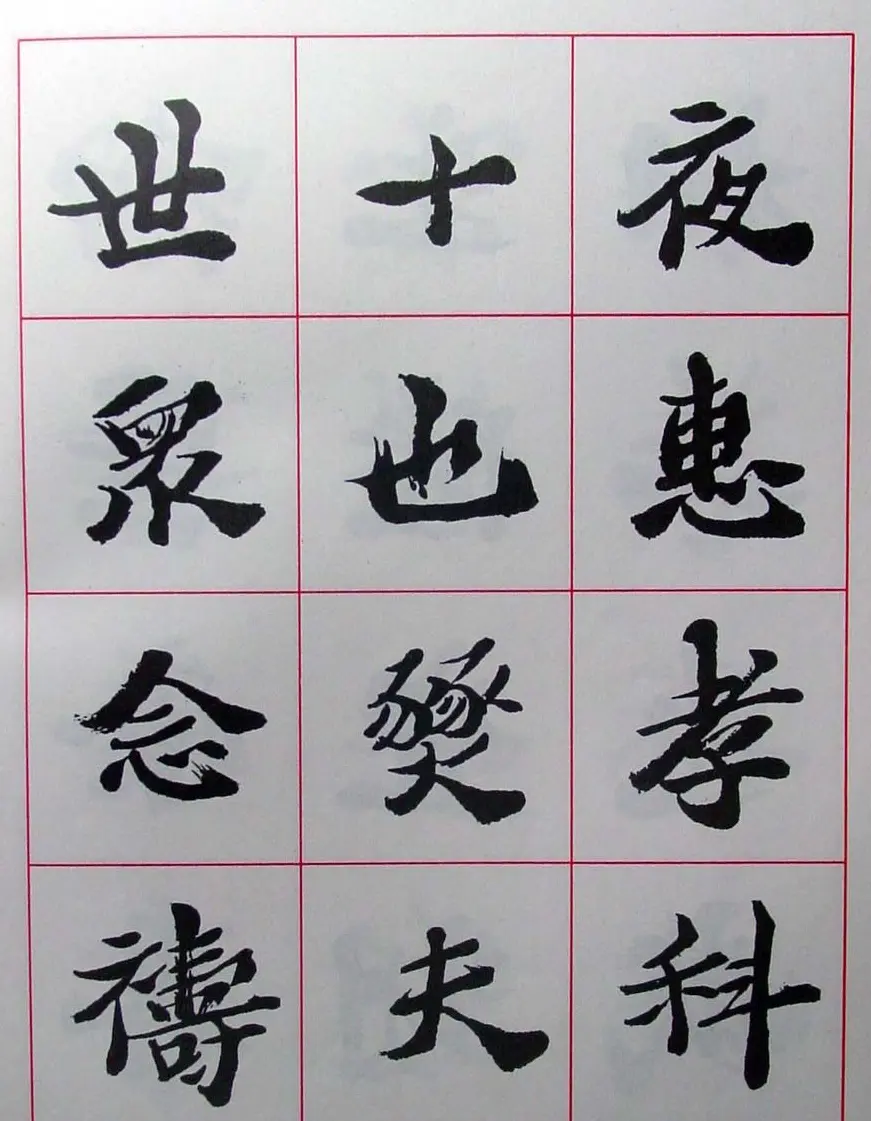 夜惠孝科
十也燹夫
世眾念禱